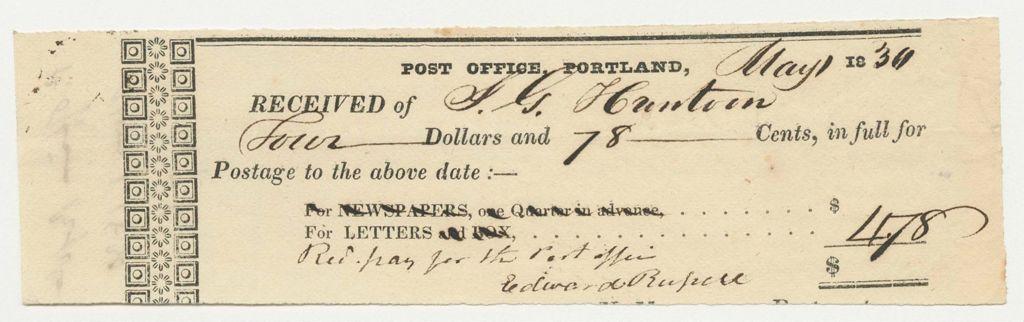 POST OFFICE, PORTLAND, May 1 1830
RECEIVED of J. G. Hunton
Four Dollars and 78 Cents, in full for
Postage to the above date :—
For NEWSPAPERS, one Quarter in advance, . . . . . . . . . . . . $
For LETTERS and BOX, . . . . . . . . . . . . . . . . . . . . 4.78
Recd. pay for the Post office $
Edward Russell